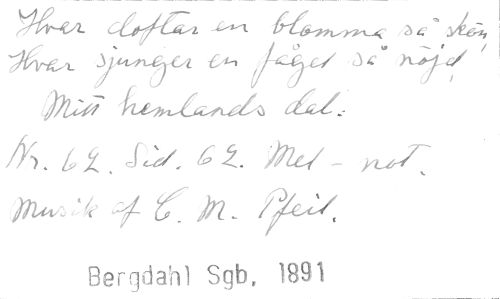 Hvar doftar en blomma så skön,
Hvar sjunger en fågel så nöjd,
Mitt hemlands dal:
Nr. 62. Sid. 62. Mel - not.
Musik af C. M. Pfeil.
Bergdahl Sgb. 1891